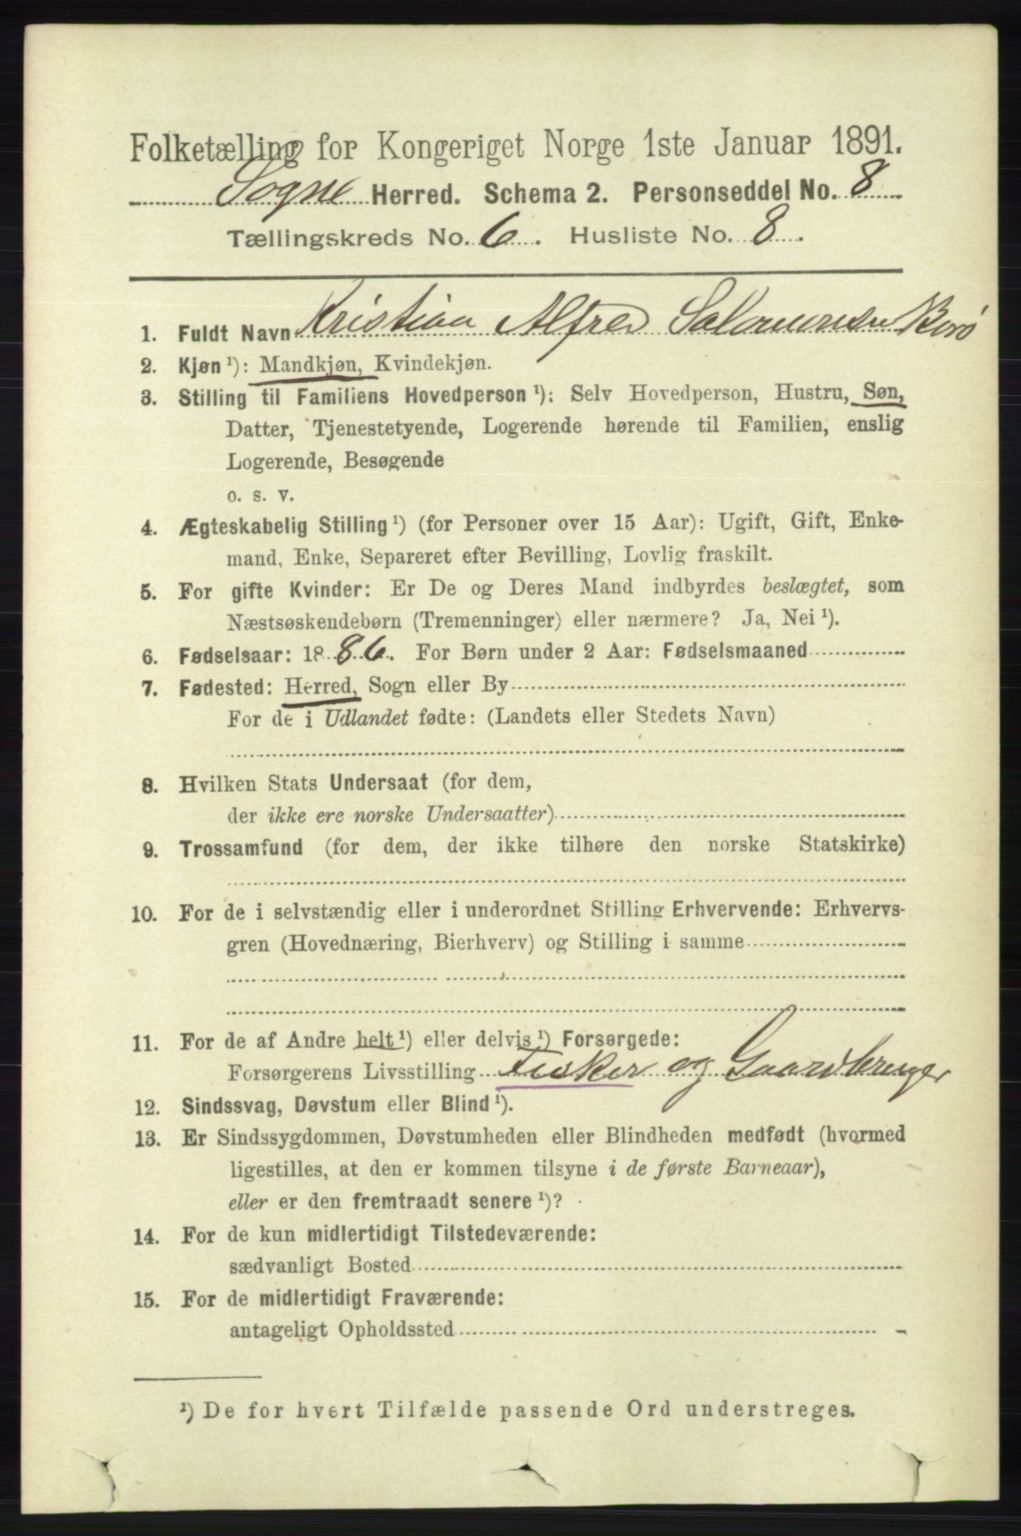 Folketælling for Kongeriget Norge 1ste Januar 1891.
Søgne Herred. Schema 2. Personseddel No. 8
Tællingskreds No. 6. Husliste No. 8.
1. Fuldt Navn Kristian Alfred Salomonsen Borø
2. Kjøn ¹): Mandkjøn, Kvindekjøn.
3. Stilling til Familiens Hovedperson ¹): Selv Hovedperson, Hustru, Søn,
Datter, Tjenestetyende, Logerende hørende til Familien, enslig
Logerende, Besøgende
o. s. v.
4. Ægteskabelig Stilling ¹) (for Personer over 15 Aar): Ugift, Gift, Enke-
mand, Enke, Separeret efter Bevilling, Lovlig fraskilt.
5. For gifte Kvinder: Er De og Deres Mand indbyrdes beslægtet, som
Næstsøskendebørn (Tremenninger) eller nærmere? Ja, Nei ¹).
6. Fødselsaar: 1886. For Børn under 2 Aar: Fødselsmaaned
7. Fødested: Herred, Sogn eller By
For de i Udlandet fødte: (Landets eller Stedets Navn)
8. Hvilken Stats Undersaat (for dem,
der ikke ere norske Undersaatter)
9. Trossamfund (for dem, der ikke tilhøre den norske Statskirke)
10. For de i selvstændig eller i underordnet Stilling Erhvervende: Erhvervs-
gren (Hovednæring, Bierhverv) og Stilling i samme
11. For de af Andre helt ¹) eller delvis ¹) Forsørgede:
Forsørgerens Livsstilling Fisker og Gaardbruger
12. Sindssvag, Døvstum eller Blind ¹).
13. Er Sindssygdommen, Døvstumheden eller Blindheden medfødt (hvormed
ligestilles, at den er kommen tilsyne i de første Barneaar),
eller er den fremtraadt senere ¹)?
14. For de kun midlertidigt Tilstedeværende:
sædvanligt Bosted
15. For de midlertidigt Fraværende:
antageligt Opholdssted
¹) De for hvert Tilfælde passende Ord understreges.